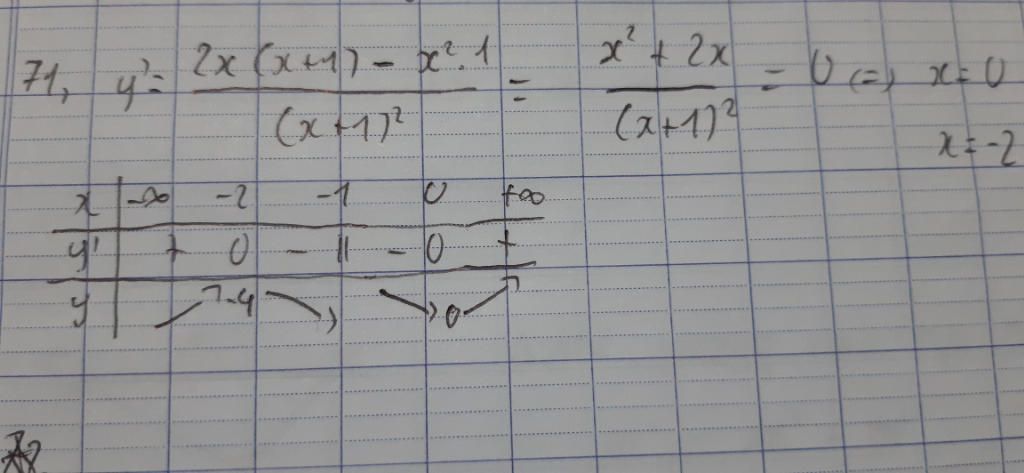 71, y' = \frac{2x(x+1) - x^2 \cdot 1}{(x+1)^2} = \frac{x^2 + 2x}{(x+1)^2} = 0 <=> x = 0
x = -2
x | -∞ -2 -1 0 +∞
y' | + 0 - || - 0 +
y | ↗ -4 ↘ ↘ 0 ↗